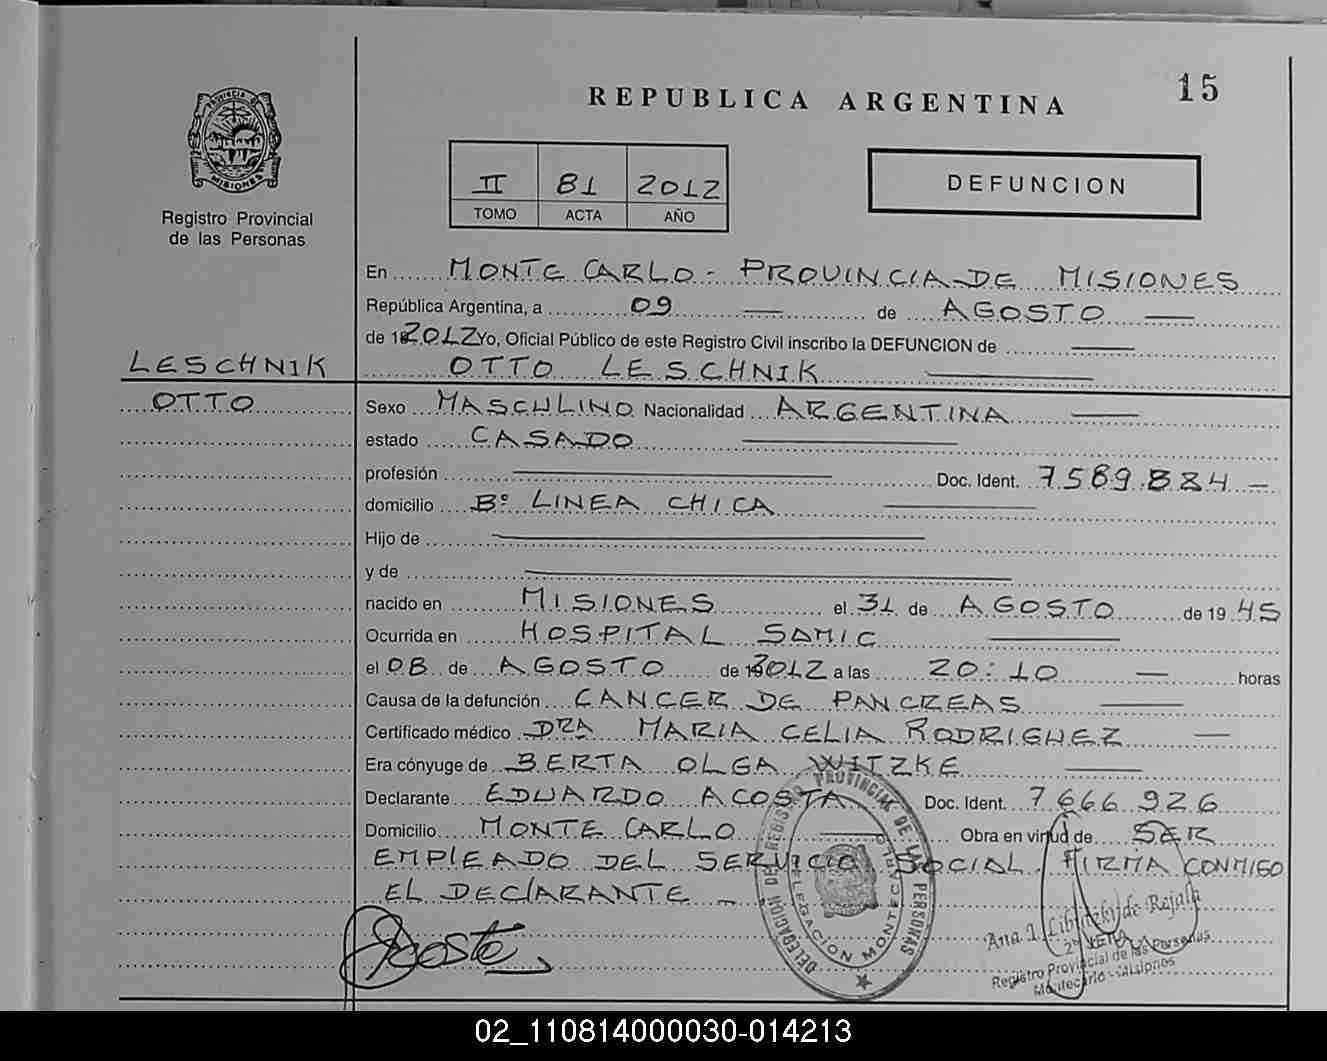 15
REPUBLICA ARGENTINA
PROVINCIA DE
MISIONES
Registro Provincial
de las Personas
II 81 2012
TOMO ACTA AÑO
DEFUNCION
En MONTE CARLO - PROVINCIA DE MISIONES
República Argentina, a 09 de AGOSTO
de 2012 Yo, Oficial Público de este Registro Civil inscribo la DEFUNCION de
LESCHNIK
OTTO LESCHNIK
OTTO
Sexo MASCULINO Nacionalidad ARGENTINA
estado CASADO
profesión Doc. Ident. 7589.884
domicilio Bº LINEA CHICA
Hijo de
y de
nacido en MISIONES el 31 de AGOSTO de 19 45
Ocurrida en HOSPITAL SAMIC
el 08 de AGOSTO de 2012 a las 20:10 horas
Causa de la defunción CANCER DE PANCREAS
Certificado médico DRA MARIA CELIA RODRIGUEZ
Era cónyuge de BERTA OLGA WITZKE
Declarante EDUARDO ACOSTA Doc. Ident. 7666926
Domicilio MONTE CARLO Obra en virtud de SER
EMPLEADO DEL SERVICIO SOCIAL. FIRMA CONMIGO
EL DECLARANTE -.
Acosta
DELEGACION DE REGISTRO PROVINCIAL DE LAS PERSONAS
DELEGACION MONTECARLO
Ana I. de Rejala
Registro Provincial de las Personas
Montecarlo - Misiones
02_110814000030-014213